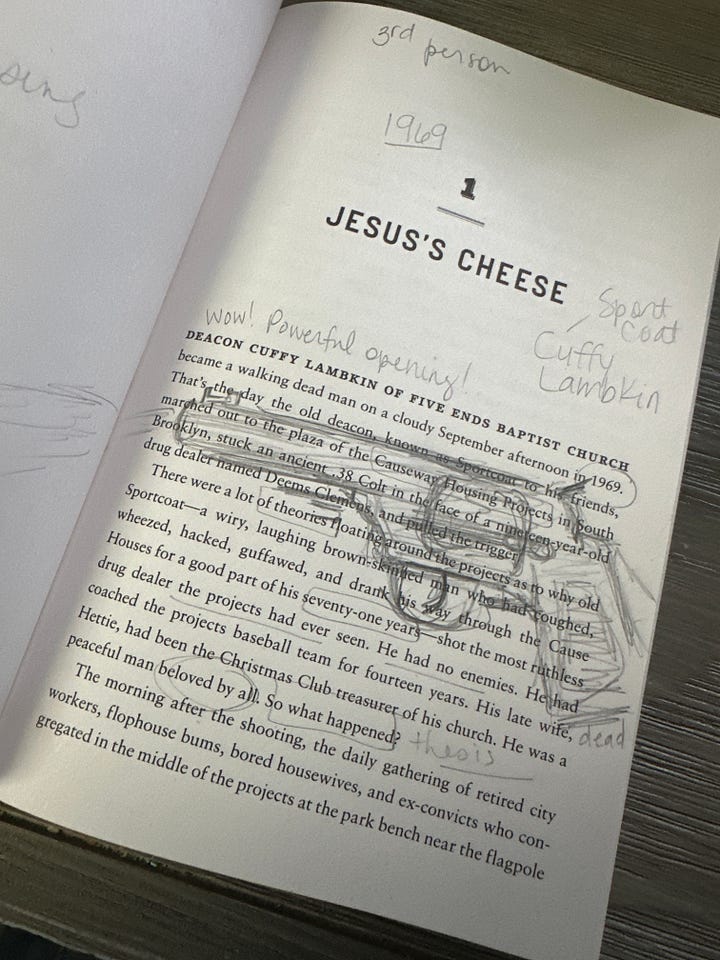 3rd person
1969
1
JESUS'S CHEESE
Sport
coat
Cuffy
Lambkin
Wow! Powerful opening!
DEACON CUFFY LAMBKIN OF FIVE ENDS BAPTIST CHURCH
became a walking dead man on a cloudy September afternoon in 1969.
That's the day the old deacon, known as Sportcoat to his friends,
marched out to the plaza of the Causeway Housing Projects in South
Brooklyn, stuck an ancient .38 Colt in the face of a nineteen-year-old
drug dealer named Deems Clemens, and pulled the trigger.
There were a lot of theories floating around the projects as to why old
Sportcoat—a wiry, laughing brown-skinned man who had coughed,
wheezed, hacked, guffawed, and drank his way through the Cause
Houses for a good part of his seventy-one years—shot the most ruthless
drug dealer the projects had ever seen. He had no enemies. He had
coached the projects baseball team for fourteen years. His late wife, dead
Hettie, had been the Christmas Club treasurer of his church. He was a
peaceful man beloved by all. So what happened? thesis
The morning after the shooting, the daily gathering of retired city
workers, flophouse bums, bored housewives, and ex-convicts who con-
gregated in the middle of the projects at the park bench near the flagpole